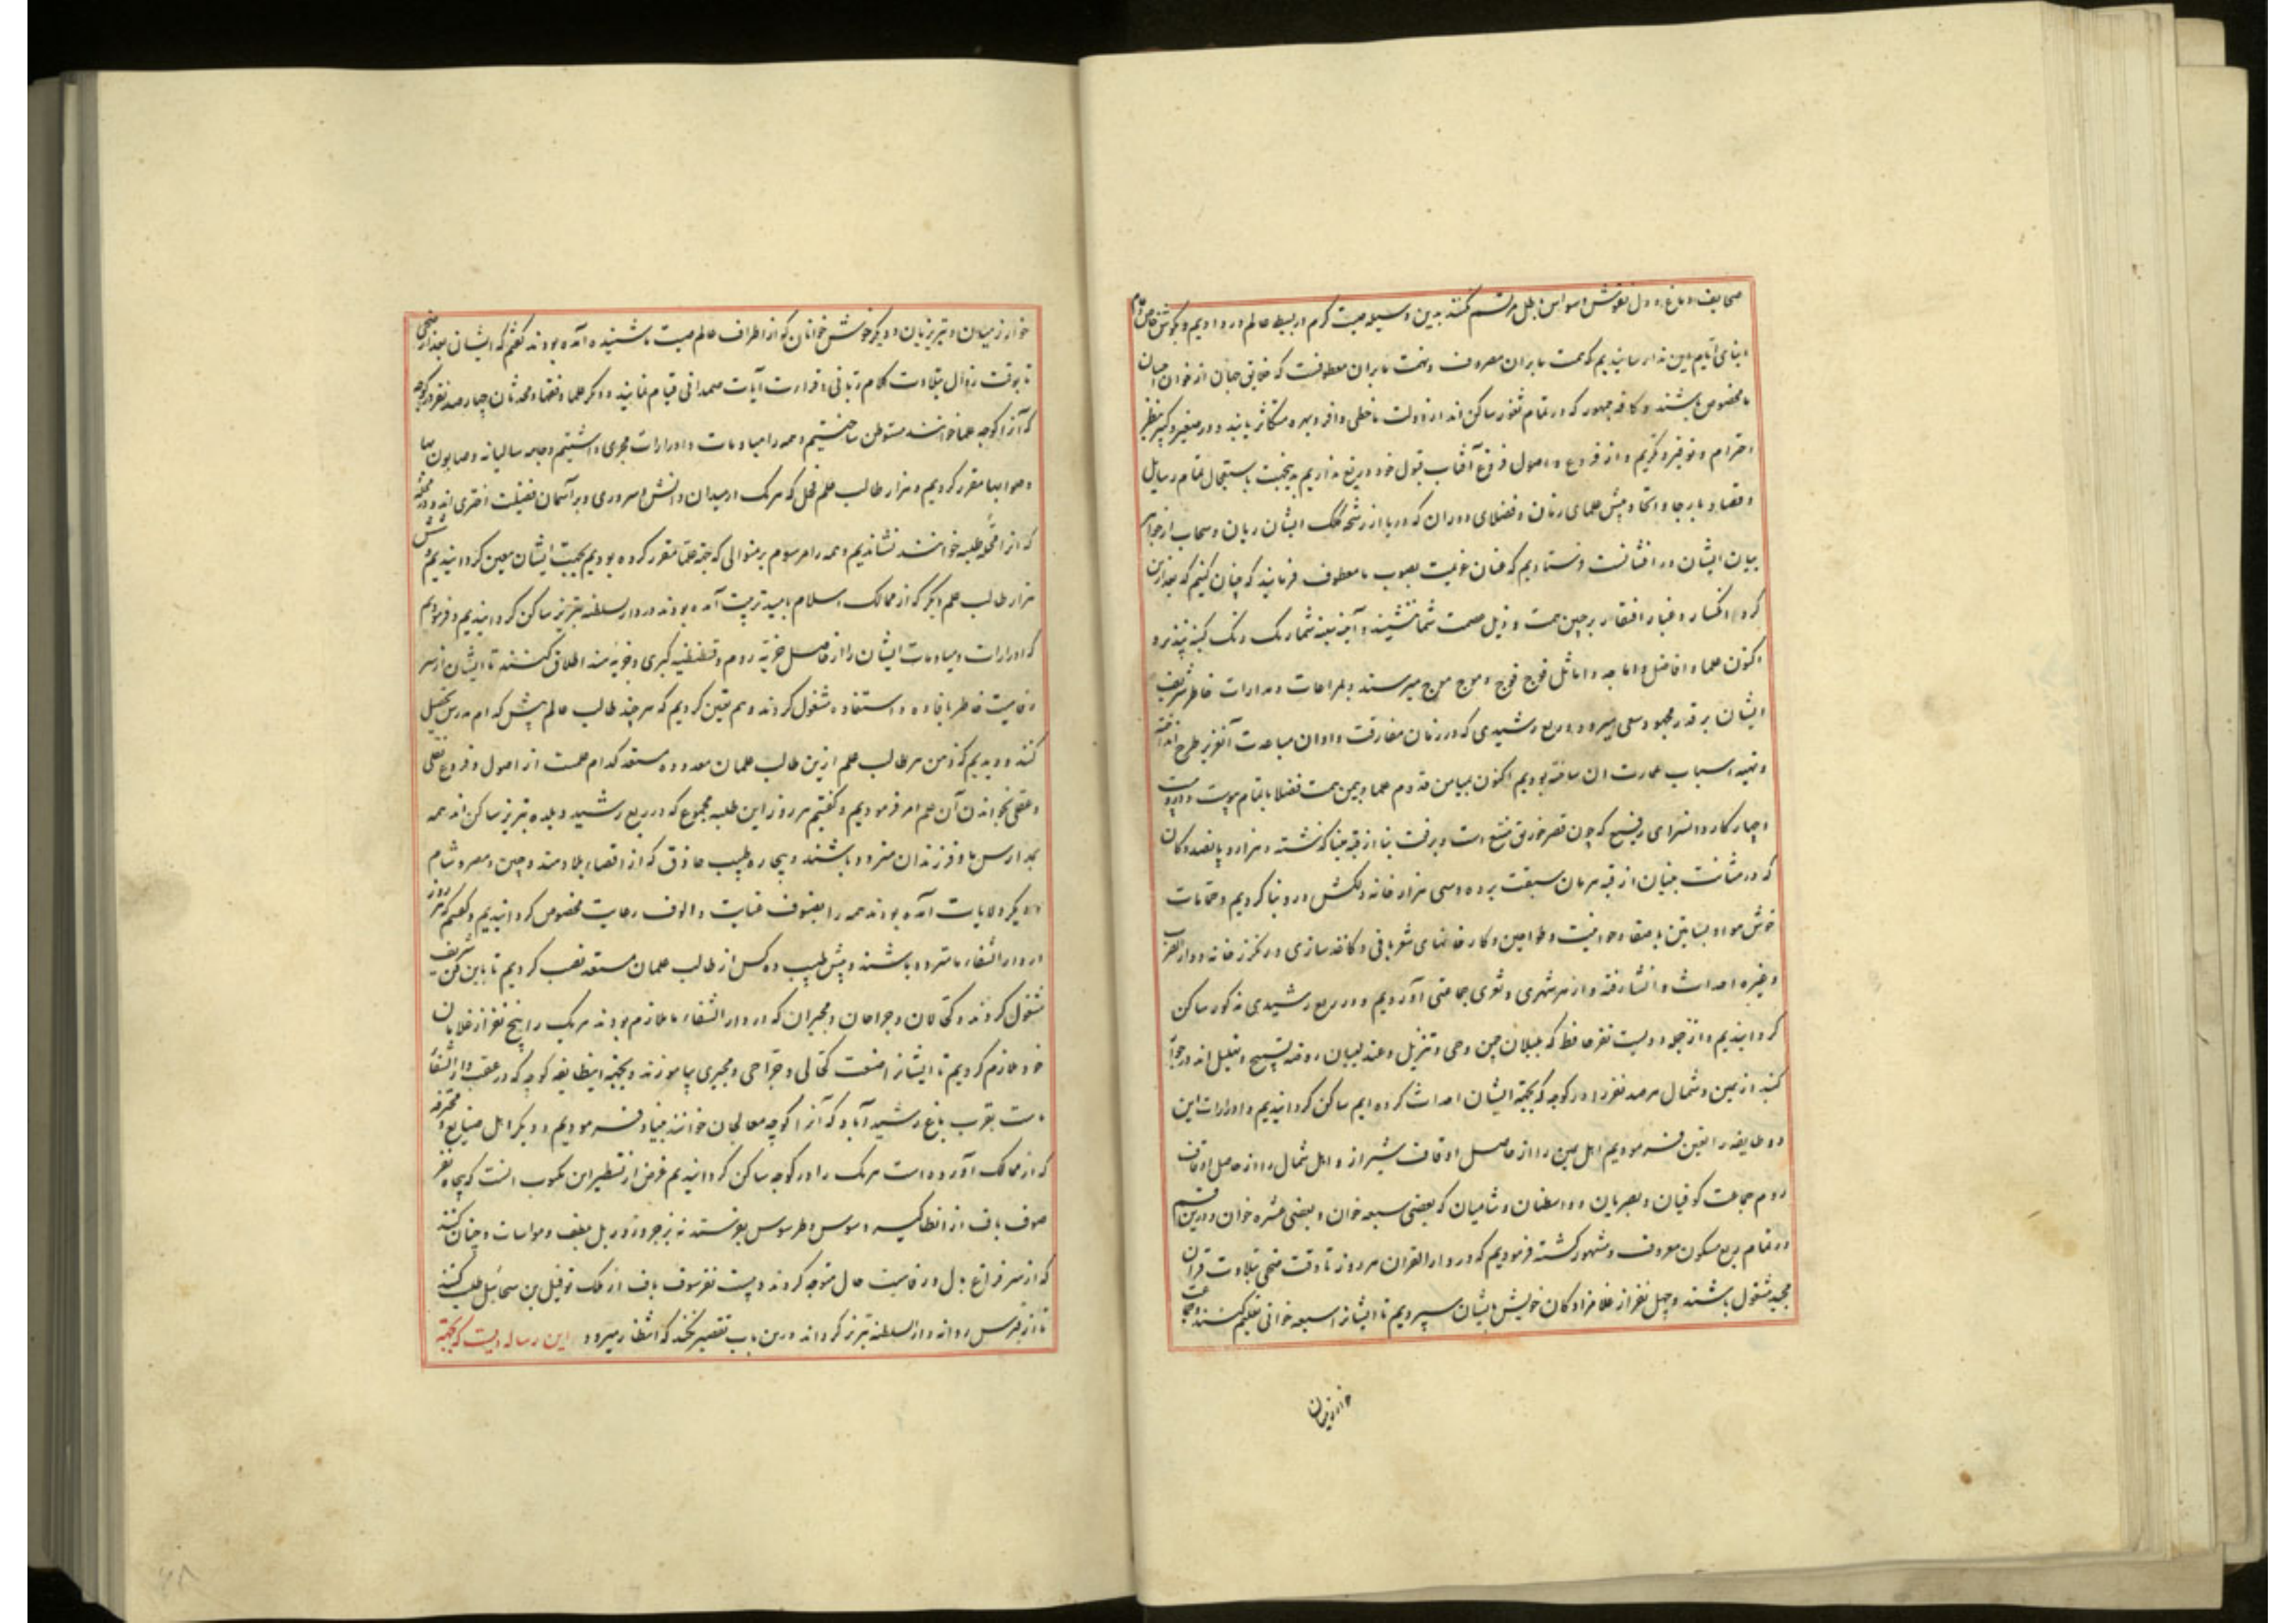 صحایف دماغ و دل نقوش وسواس باطل مرتسم نکنند بدین وسیله صیت کرم در بسیط عالم در دادیم و بگوش خاص و عام
ابنای ایام این ندا رسانیدیم که همت ما بران مصروف و نهمت ما بران معطوفست که خلایق جهان از خوان احسان
ما مخصوص باشند و کافه جمهور که در تمام ثغور ساکن‌اند از دولت ما حظی وافر و بهره متکاثر یابند و در صغیر و کبیر بنظر
احترام و توقیر نگریم و از فروع و اصول فروغ آفتاب قبول خود دریغ نداریم بدینجهت باستعجال تمام رسایل
و قصاد بارجا و انحا و پیش علمای زمان و فضلای دوران که دریا از رشحه کلک ایشان ریان و سحاب از
بیان ایشان در افشانست فرستادیم که عنان عزیمت بصوب ما معطوف فرمایند که چنان کنیم که بعد ازین
گرد انکسار و غبار افتقار بر جبین همت و ذیل عصمت شما ننشیند و آینه سینه شما رنگ زنگ کینه نپذیرد
اکنون علما و افاضل و اماجد و اماثل فوج فوج و موج موج میرسند و بمراعات و مدارات خاطر شریف
ایشان بر قدر مجهود سعی میرود و ربع رشیدی که در زمان مفارقت و اوان مباعدت آنعزیز طرح انداخته
و تهیه اسباب عمارت ان ساخته بودیم اکنون بمیامن قدوم علما و بیمن همت فضلا باتمام پیوست و
و چهار کاروانسرای رفیع که چون قصر خورنق منیع است و برفعت بنا از قبه مینا گذشته و هزار و پانصد دکان
که در متانت بنیان از قبه هرمان سبقت برده و سی هزار خانه دلکش درو بنا کردیم و حمامات
خوش هوا و بساتین با صفا و حوانیت و طواحین و کارخانهای شعر بافی و کاغذ سازی و رنگرز خانه و دار الضرب
و غیره احداث و انشا رفته و از هر شهری و ثغری جماعتی آوردیم و در ربع رشیدی مذکور ساکن
گردانیدیم و از جمله دویست نفر حافظ که بلبلان چمن وحی و تنزیل و عندلیبان روضه تسبیح و تهلیل‌اند در جوار
گنبد از یمین و شمال هر صد نفر را در کوچه که بجهة ایشان احداث کرده ایم ساکن گردانیدیم و ادرارات این
دو طایفه را تعین فرمودیم اهل یمین را از حاصل اوقاف شیراز و اهل شمال را از حاصل اوقاف
روم جماعت کوفیان و بصریان و واسطیان و شامیان که بعضی سبعه خوان و بعضی عشره خوان و درین قسم
در تمام ربع مسکون معروف و مشهور گشته فرمودیم که در دار القران هر روز تا وقت ضحی بتلاوت قران
مجید مشغول باشند و چهل نفر از غلامزادگان خویش بایشان سپردیم تا ایشانرا سبعه خوانی تعلیم کنند و جماعت
خوارزمیان
خوارزمیان و تبریزیان و دیگر خوش خوانان که از اطراف عالم صیت ما شنیده آمده بودند گفتیم که ایشان بعد از ضحی
تا بوقت زوال بتلاوت کلام ربانی و قرائت آیات صمدانی قیام نمایند و دیگر علما و فقها و محدثان چهار صد نفر در کوچه
که آنرا کوچه علما خوانند متوطن ساختیم و همه را میاومات و ادرارات مجری داشتیم و جامه سالیانه و صابون بها
و حلوا بها مقرر کردیم و هزار طالب علم فحل که هر یک در میدان دانش سروری و بر آسمان فضیلت اختری اند در محله
که آنرا محله طلبه خوانند نشاندیم و همه را مرسوم بر منوالی که جهة علما مقرر کرده بودیم بجهت ایشان معین گردانیدیم و شش
هزار طالب علم دیگر که از ممالک اسلام بامید تربیت آمده بودند در دار السلطنه تبریز ساکن گردانیدیم و فرمودیم
که ادرارات و میاومات ایشان را از حاصل جزیه روم و قسطنطنیه کبری و جزیه هند اطلاق کنند تا ایشان از سر
رفاهیت خاطر بافاده و استفاده مشغول گردند و هم تعین کردیم که هر چند طالب عالم پیش کدام مدرس تحصیل
کنند و دیدیم که ذهن هر طالب علم ازین طالب علمان معدوده مستعد کدام علمست از اصول و فروع نقلی
و عقلی بخواندن آن علم امر فرمودیم و گفتیم هر روز این طلبه مجموع که در ربع رشیدی و بلده تبریز ساکن اند همه
بمدارس ما و فرزندان متردد باشند و پنجاه طبیب حاذق که از اقصا بلاد هند و چین و مصر و شام
و دیگر ولایات آمده بودند همه را بصنوف عنایت و الوف رعایت مخصوص گردانیدیم و گفتیم که هر روز
در دار الشفاء ما متردد باشند و پیش طبیب ده کس از طالب علمان مستعد نصب کردیم تا باین فن شریف
مشغول گردند و کحالان و جراحان و مجبران که در دار الشفاء ما ملازم بودند هر یک را پنج نفر از غلامان
خود ملازم کردیم تا ایشانرا صنعت کحالی و جراحی و مجبری بیاموزند و بجهة اینطایفه کوچه که در عقب دار الشفا
ماست بقرب باغ رشید آباد که آنرا کوچه معالجان خوانند بنیاد فرمودیم و دیگر اهل صنایع و محترفه
که از ممالک آورده است هر یک را در کوچه ساکن گردانیدیم غرض از تسطیر این مکتوب انست که پنجاه نفر
صوف باف از انطاکیه و سوس و طرسوس بفرستند نه بزجر و زور بل بلطف و مواسات و چنان کنند
که از سر فراغ بال و رفاهیت حال متوجه گردند و بیست نفر صوف باف از ملک نوفیل بن سحائیل طلب کنند
تا از قبرس روانه دار السلطنه تبریز گرداند درین باب تقصیر نکند که انتظار میرود این رساله ایست که بجهة